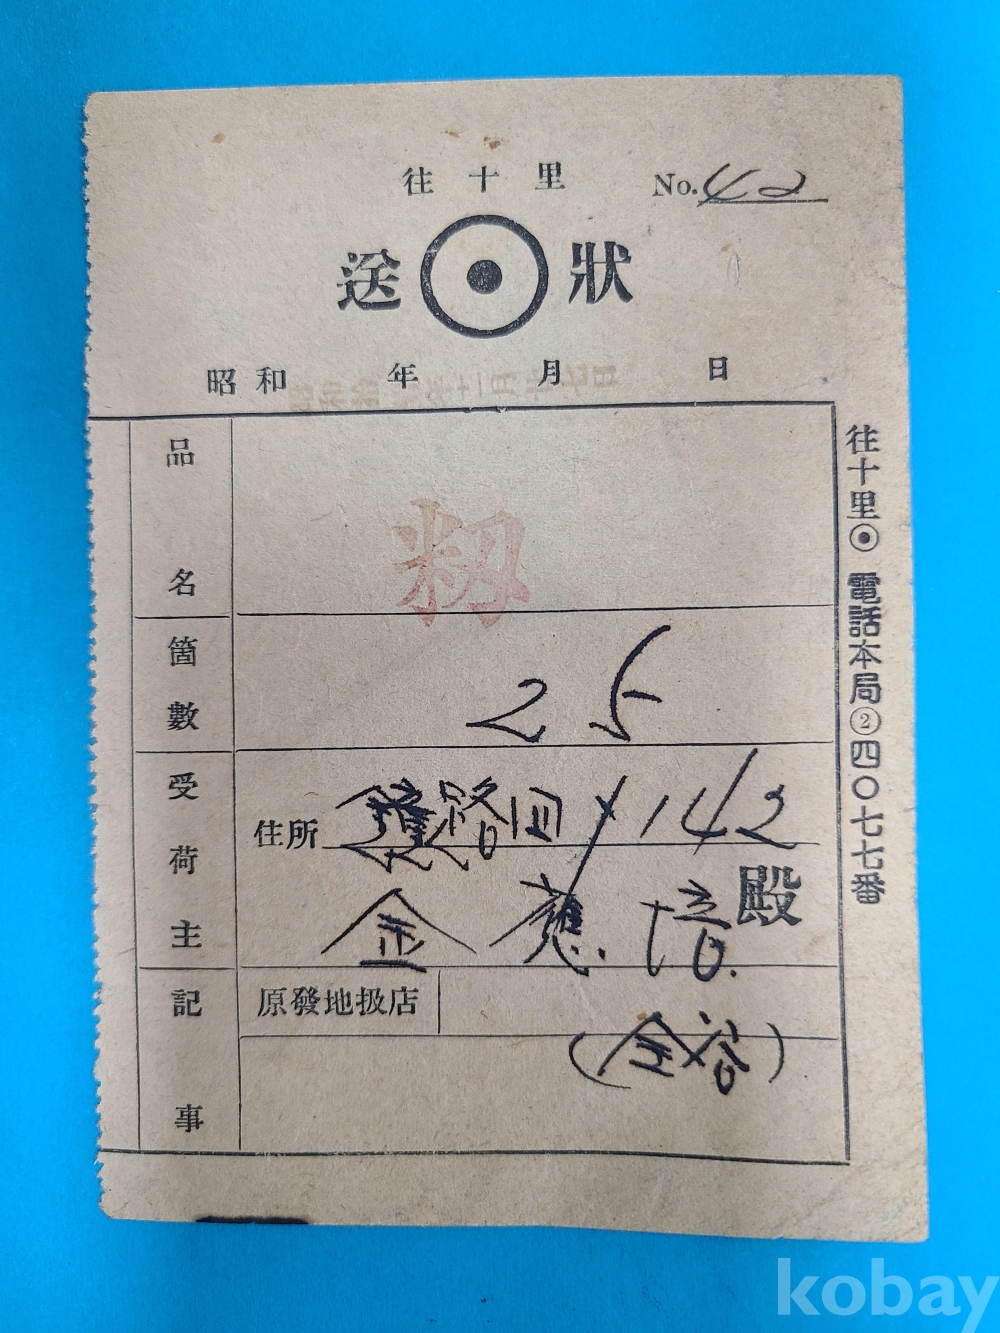 往十里
No. 42
送 狀
昭和 年 月 日
品名
籾
箇數
25
受荷主
住所 鐘路四ノ142
金應培 殿
記事
原發地扱店
(金谷)
往十里 電話本局②四〇七七番
kobay